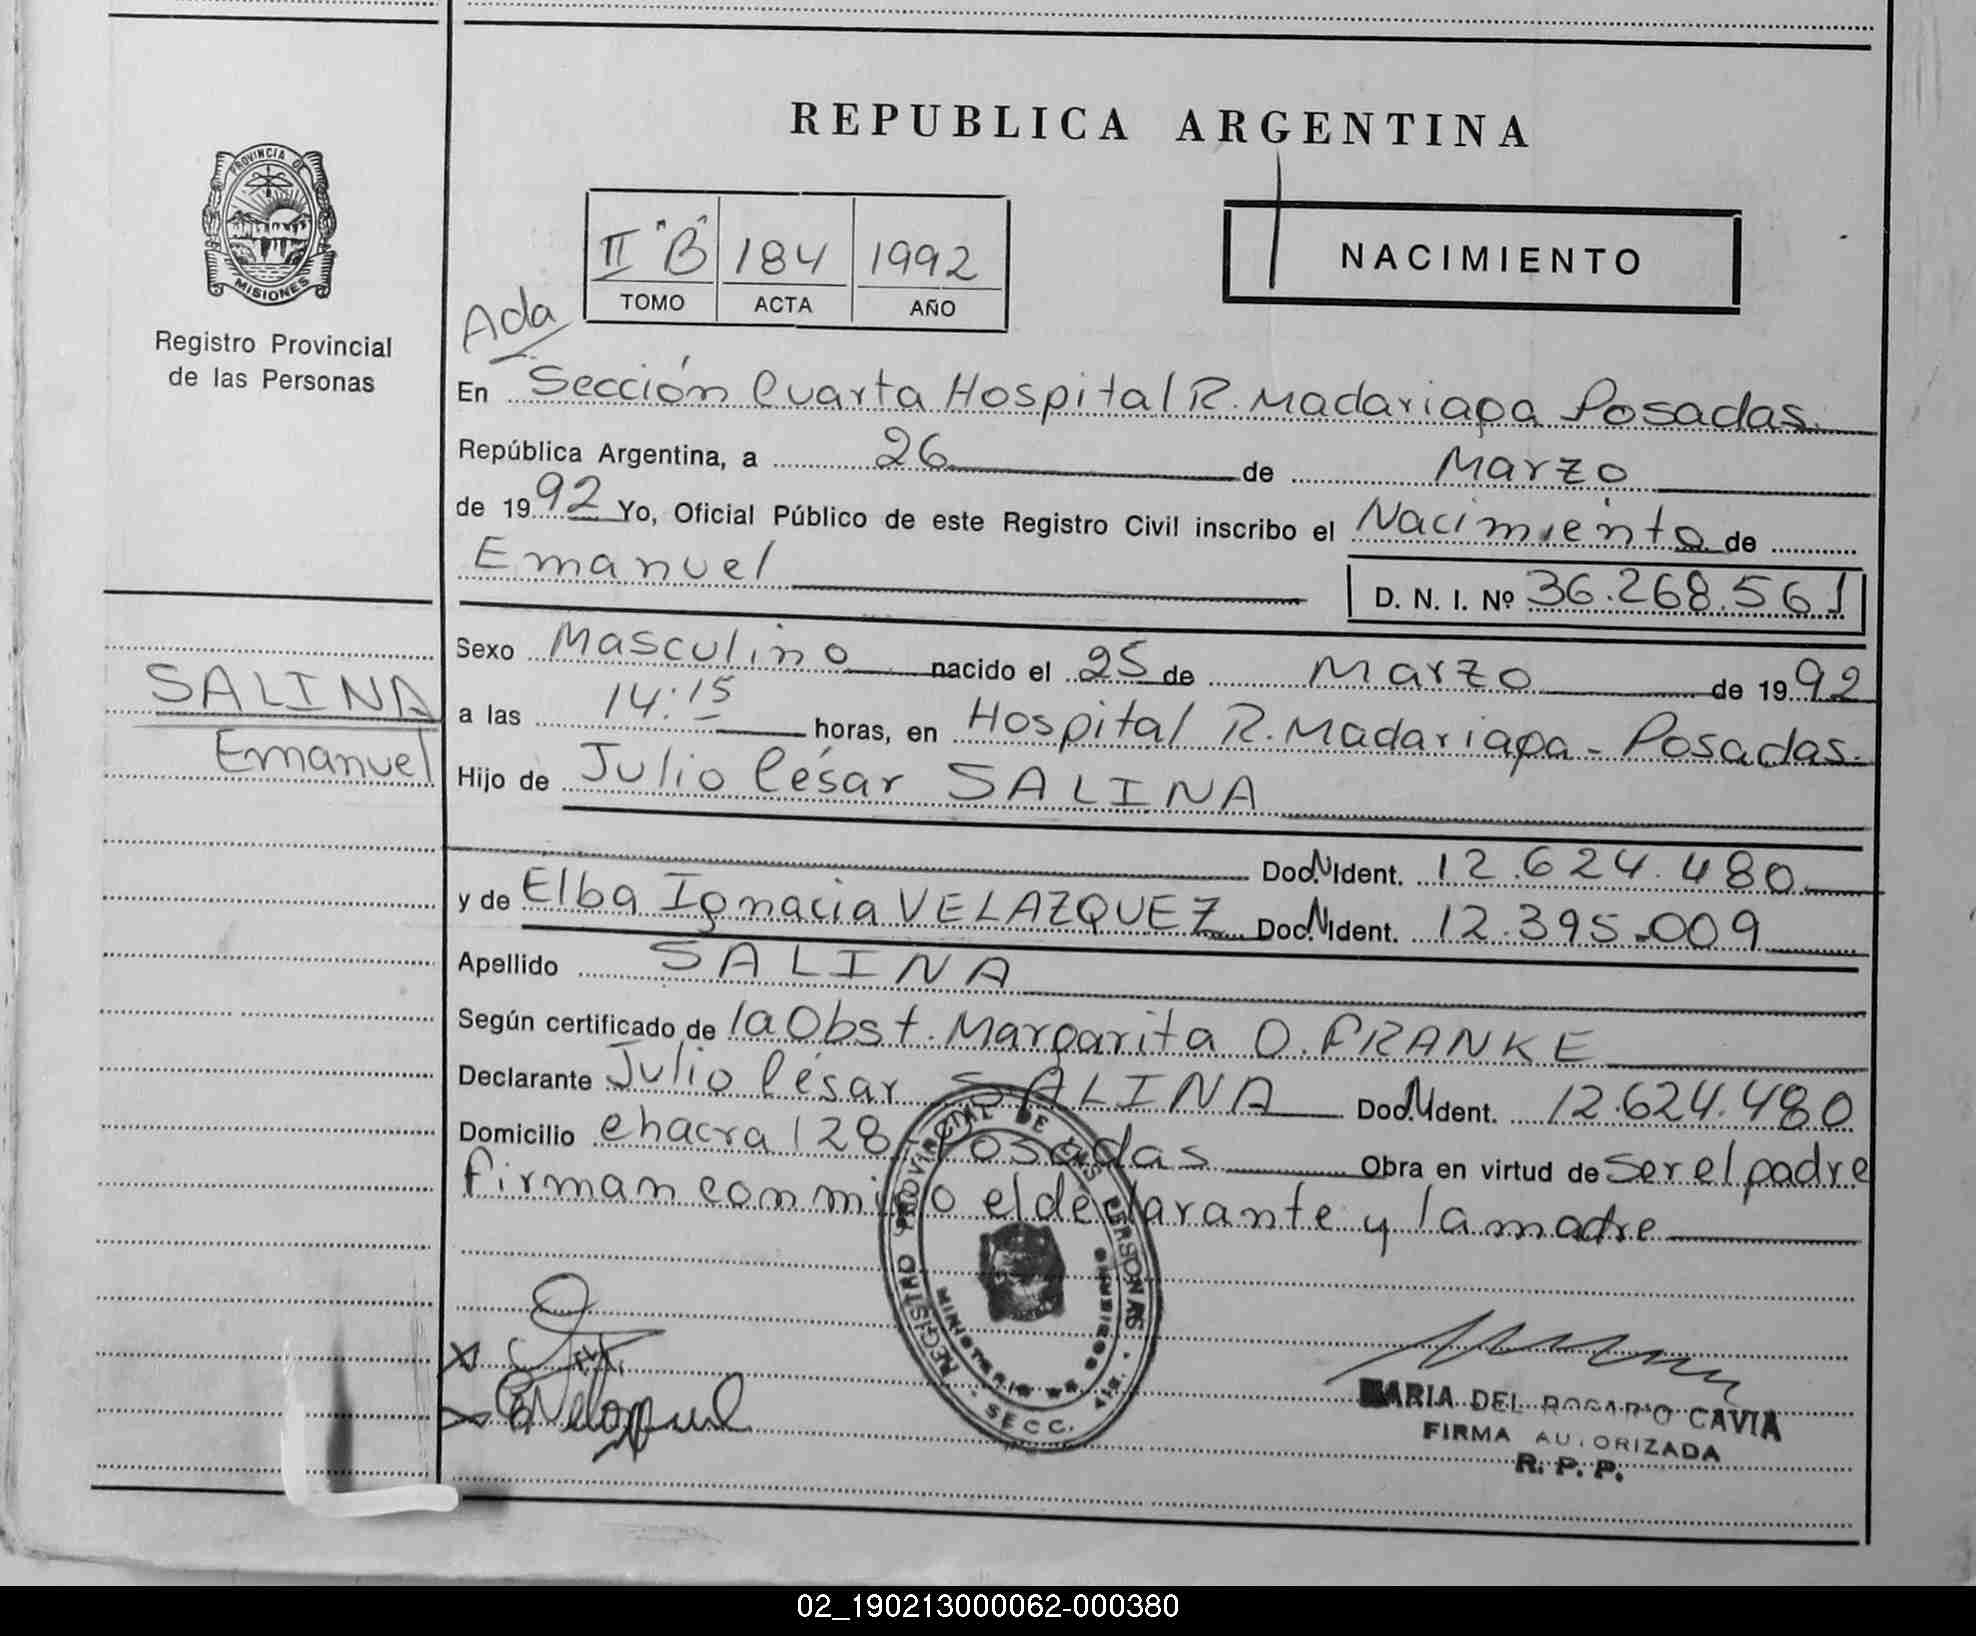 REPUBLICA ARGENTINA
PROVINCIA DE
MISIONES
Registro Provincial
de las Personas
II "B" 184 1992
TOMO ACTA AÑO
NACIMIENTO
Ada
En Sección Cuarta Hospital R. Madariaga Posadas.
República Argentina, a 26 de Marzo
de 1992 Yo, Oficial Público de este Registro Civil inscribo el Nacimiento de
Emanuel
D. N. I. Nº 36.268.561
SALINA
Emanuel
Sexo Masculino nacido el 25 de Marzo de 1992
a las 14:15 horas, en Hospital R. Madariaga - Posadas.
Hijo de Julio César SALINA
Doc. N Ident. 12.624.480
y de Elba Ignacia VELAZQUEZ Doc. N Ident. 12.395.009
Apellido SALINA
Según certificado de la Obst. Margarita O. FRANKE
Declarante Julio César SALINA Doc. N Ident. 12.624.480
Domicilio chacra 128 - Posadas Obra en virtud de ser el padre
firman conmigo el declarante y la madre
REGISTRO PROVINCIAL DE LAS PERSONAS
MINISTERIO DE GOBIERNO
SECC.
MARIA DEL ROSARIO CAVIA
FIRMA AUTORIZADA
R. P. P.
02_190213000062-000380